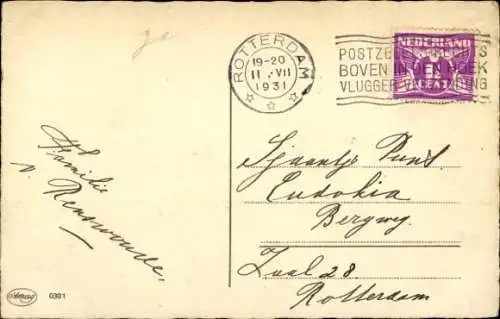 ROTTERDAM
19-20
11 .VII
1931
POSTZEGELS RECHTS
BOVEN IN DEN HOEK
VLUGGER VERZENDING
NEDERLAND
CENT
Familie
v. Renswoude.
Sjaantje Punt
Eudokia
Bergweg.
Zaal 28.
Rotterdam
0301